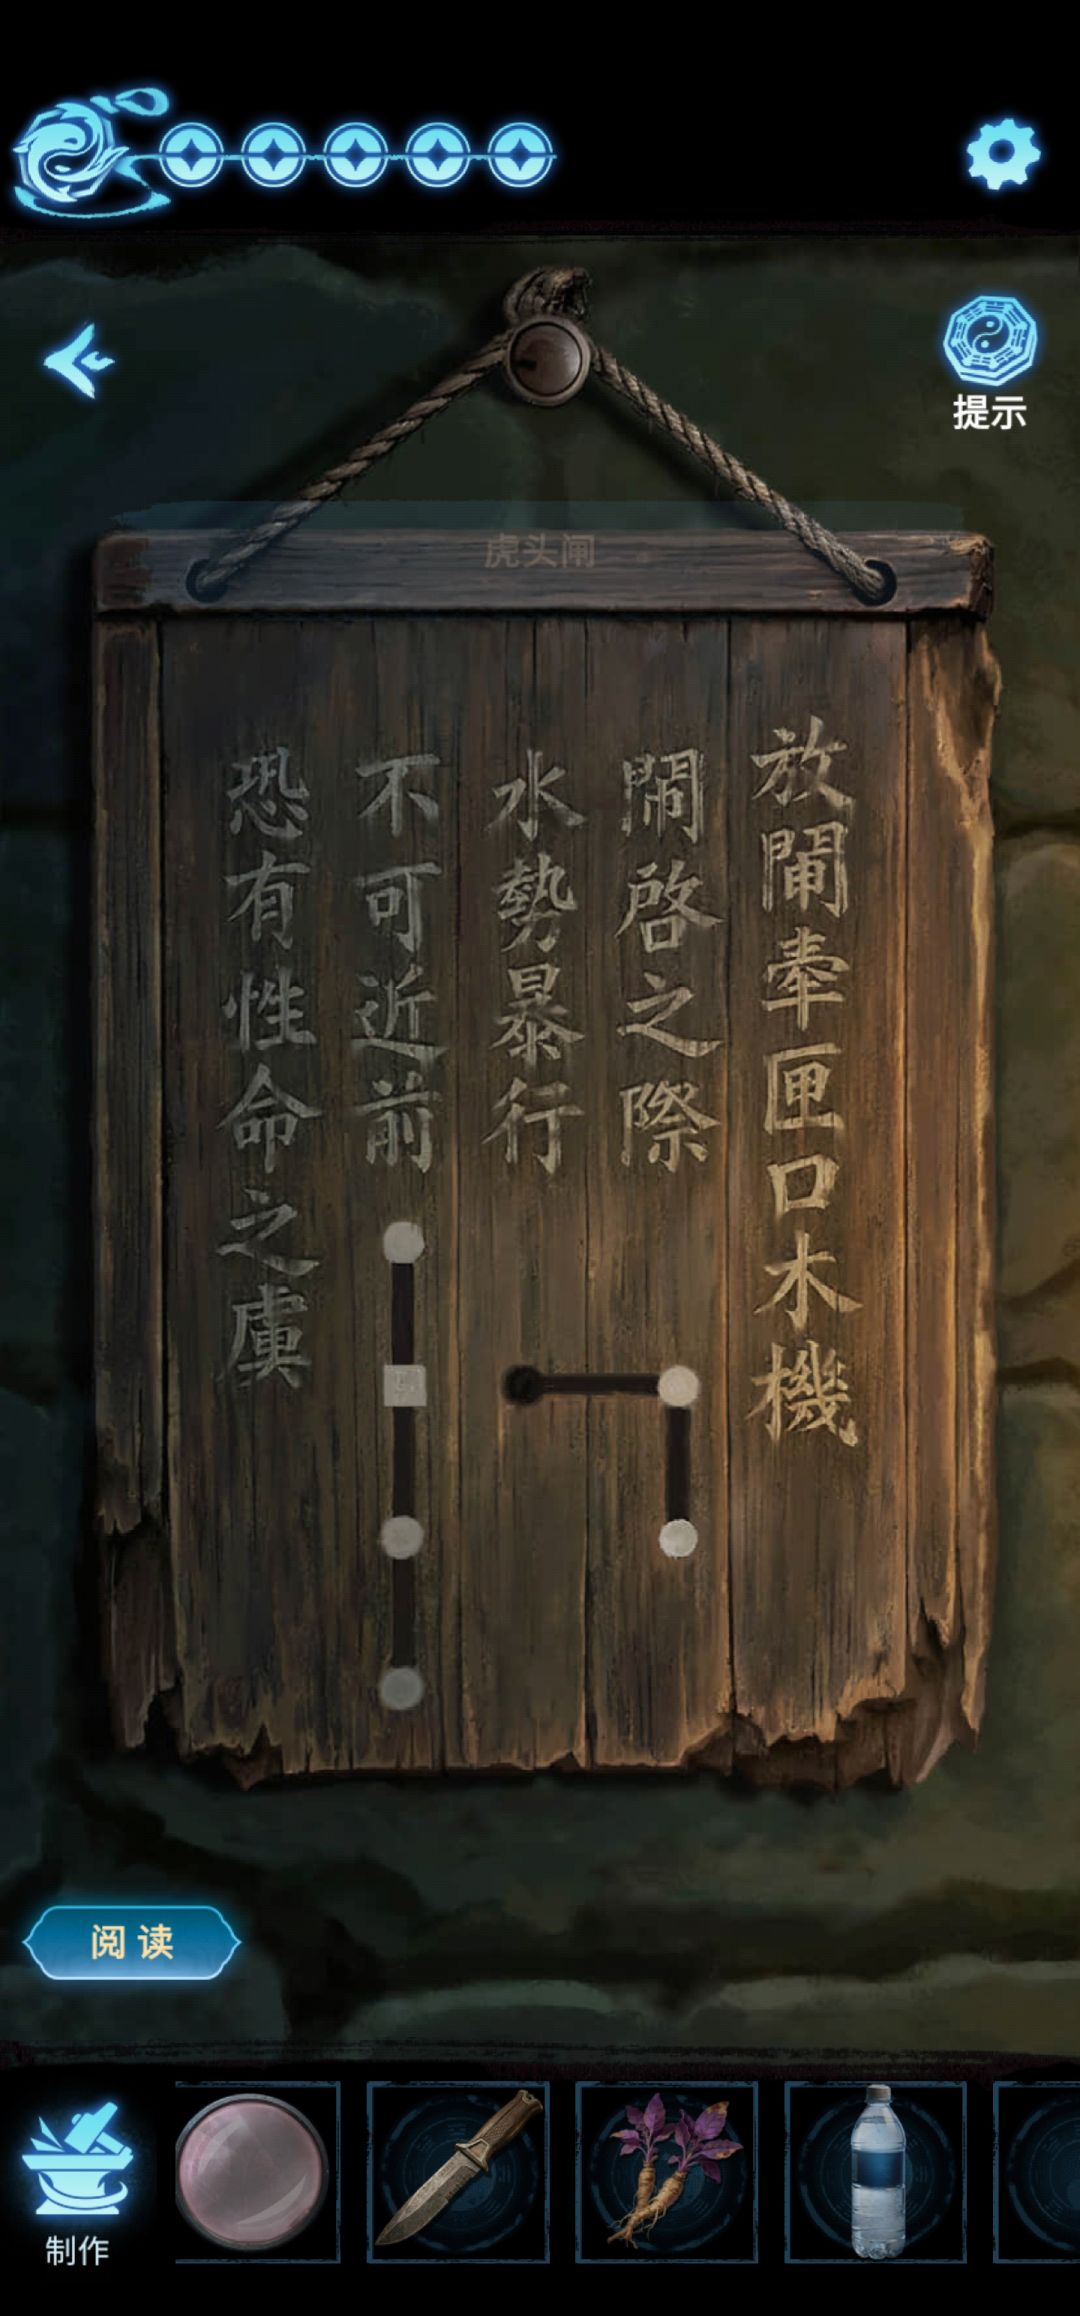 提示
虎头闸
放閘牽匣口木機
閘啓之際
水勢暴行
不可近前
恐有性命之虞
阅读
制作